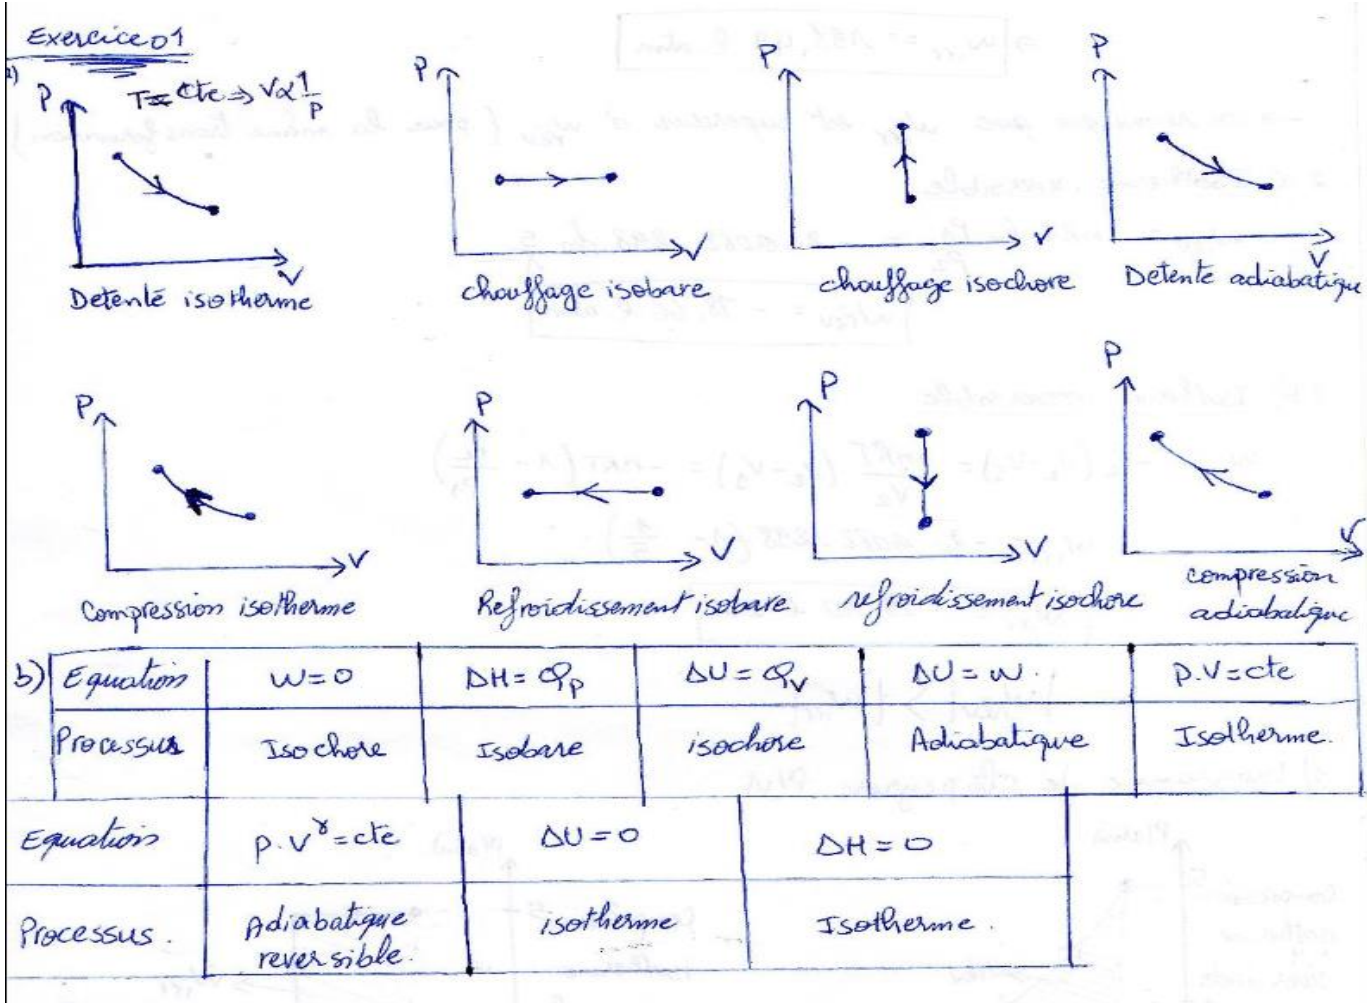 Exercice 01
a)
P
T = cte ⇒ V α 1/P
V
Detenté isotherme
P
V
chauffage isobare
P
V
chouffage isochore
P
V
Detente adiabatique
P
V
Compression isotherme
P
V
Refroidissement isobare
P
V
refroidissement isochore
P
V
compression
adiabatique
b) Equation W=0 ΔH=Qp ΔU=Qv ΔU=W. P.V=cte
Processus Isochore Isobare isochore Adiabatique Isotherme.
Equation P.V^γ=cte ΔU=0 ΔH=0
Processus. Adiabatique reversible. isotherme Isotherme.